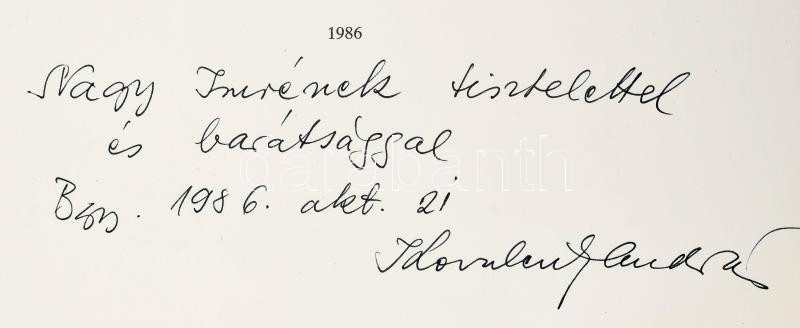 1986
Nagy Imrének tisztelettel
és barátsággal
Bp. 1986. okt. 21
Kovalcsik András
darabanth